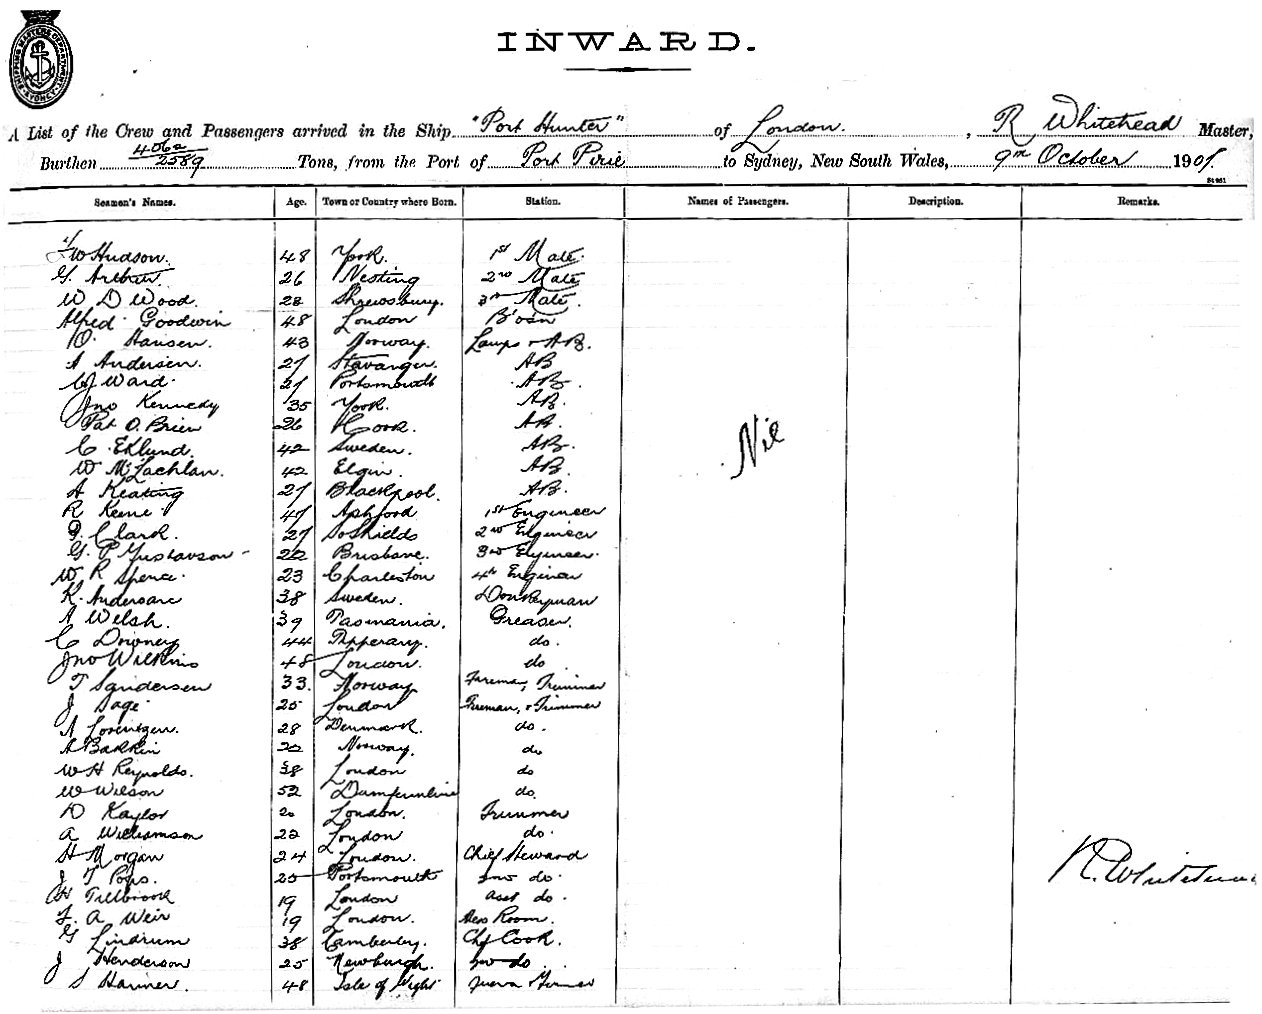 SHIPPING MASTERS DEPARTMENT SYDNEY
INWARD.
A List of the Crew and Passengers arrived in the Ship "Port Hunter" of London. , R Whitehead Master,
Burthen 4062/2589 Tons, from the Port of Port Pirie to Sydney, New South Wales, 9th October 1908.
Seamen's Names. Age. Town or Country where Born. Station. Names of Passengers. Description. Remarks.
W Hudson. 48 York. 1st Mate.
G. Arthur 26 Nesting 2nd Mate
W D Wood. 28 Shrewsbury. 3rd Mate.
Alfred Goodwin 48 London B'osn
O. Hansen. 43 Norway. Lamps & AB.
A Andersen. 27 Stavanger. AB
CJ Ward. 27 Portsmouth AB.
Jno Kennedy 35 York. AB.
Pat O.Brien 26 Cork. AB.
C. Eklund. 42 Sweden. AB.
W McLachlan. 42 Elgin. AB.
A Keating 27 Blackpool. AB.
R Keene 47 Ashford 1st Engineer
Clark. 27 So Shields 2nd Engineer
G. P Gustavson 22 Brisbane. 3rd Engineer.
W R Spence. 23 Charleston 4th Engineer
K. Andersane 38 Sweden. Donkeyman
A Welsh. 39 Tasmania. Greaser.
C Downey 44 Tipperary. do.
Jno Wilkins 48 London. do
T Sandersen 33. Norway Fireman, Trimmer
J Sage 25 London Fireman, & Trimmer
A Lorentzen. 28 Denmark. do.
A Barkin 22 Norway. do
W H Reynolds. 38 London do
W Wilson 52 Dumfernline do.
D Kaylor 20 London. Trimmer
A Williamson 22 London do.
H Morgan 24 London. Chief Steward
J T Pops. 25 Portsmouth 2nd do.
H Tillbrook 19 London asst do.
F. A Weir 19 London. Mess Room.
G Lindrum 38 Camberley. Chf Cook.
J Henderson 25 Newburgh. 2nd do
S Harmer. 48 Isle of Wight
Nil
R. Whitehead